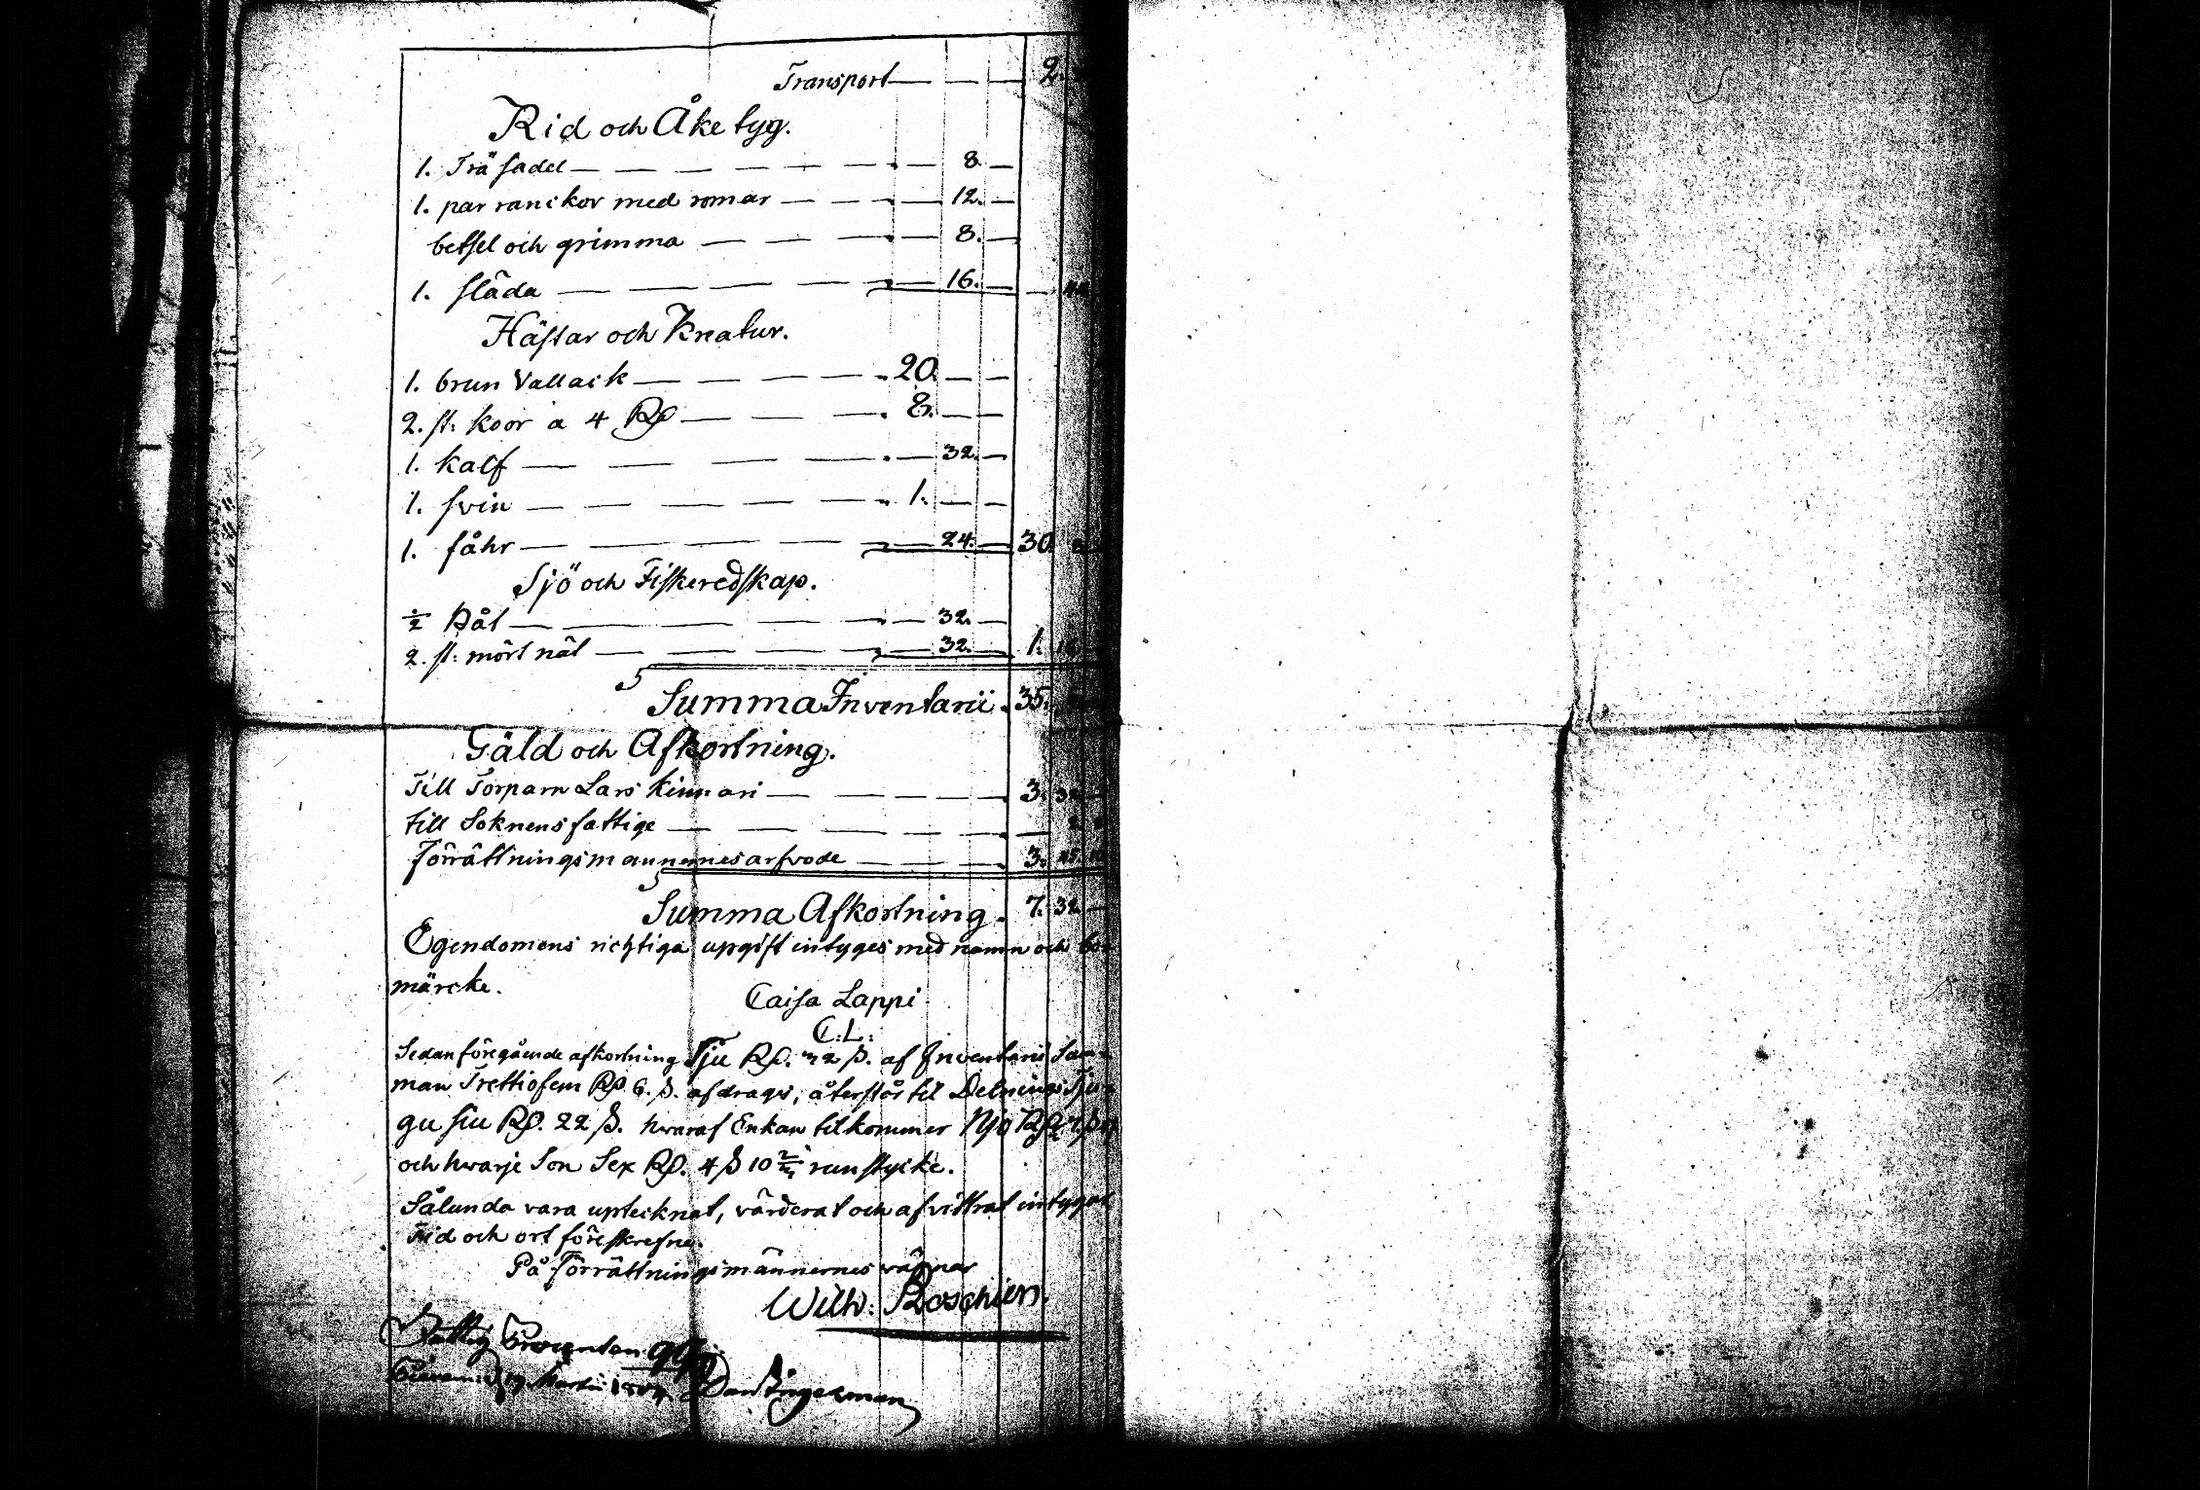 Transport — — — 2.
Rid och Åke tyg.
1. Trä sadel — — — — — 8. —
1. par ranckor med romar — — — 12. —
betsel och grimma — — — 8. —
1. släda — — — — 16. —
Hästar och Kreatur.
1. brun Vallack — — — — 20. — —
2. st: koor a 4 Rd — — — 8. — —
1. kalf — — — — — 32. —
1. svin — — — — — 1. — —
1. fåhr — — — — — 24. — 30.
Sjö och Fiskeredskap.
1/2 Båt — — — — — 32. —
2. st: mört nät — — — — 32. — 1. 16
Summa Inventarii. 35.
Gäld och Afkortning.
Till Torparn Lars Kinnari — — — — 3. 32 —
till Soknens fattige — — — —
Förrättningsmannernes arfvode — — — 3.
Summa Afkortning. 7. 32. —
Egendomens richtiga upgift intyges med namn och bo-
märcke.
Caisa Lappi
C:L:
Sedan föregående afkortning Sju Rd. 32 ß. af Inventarii Sum-
man Trettiofem Rd 6. ß. afdrages, återstår til Delning Tju-
gu siu Rd. 22 ß. hwaraf Enkan tilkommer Njo Rd
och hwarje Son Sex Rd. 4 ß 10 2/3 runstycke.
Sålunda vara uptecknat, värderat och afvittrat intygar
Tid och ort föreskrefne.
På Förrättningsmännernes vägnar
Wilh: Boschien.
Fattig Procenten
Martii Dan Ingerman